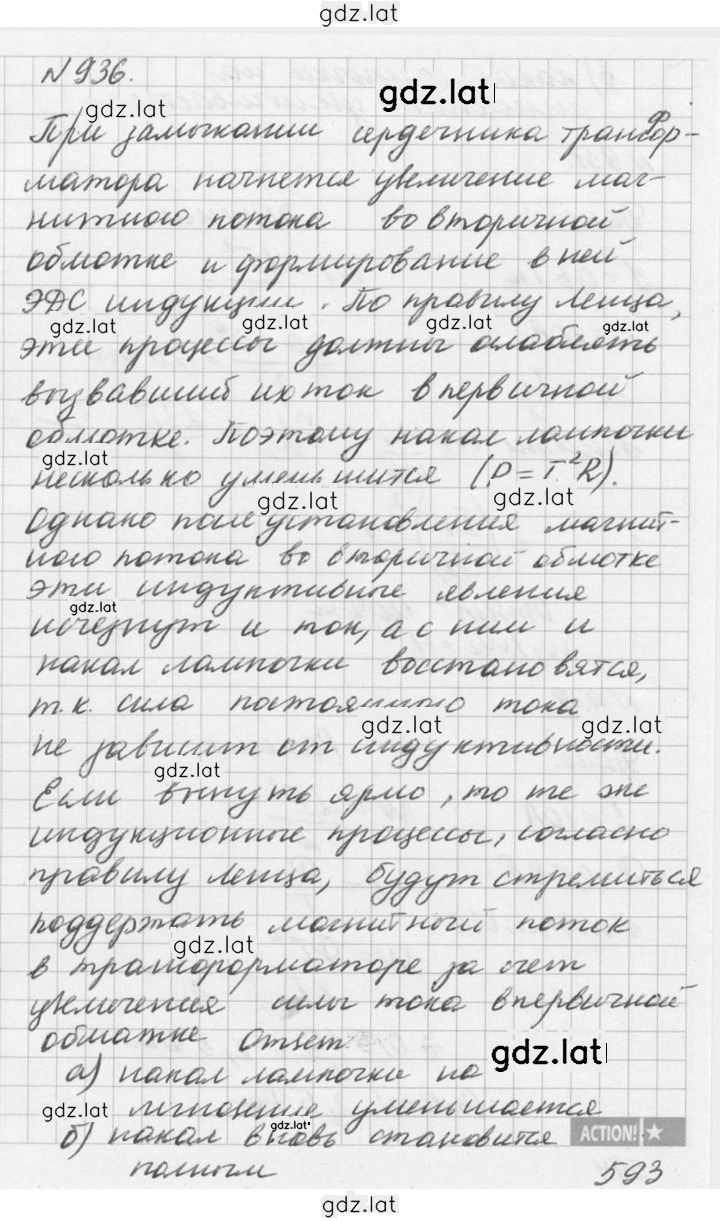 gdz.lat
№936.
gdz.lat
gdz.lat
При замыкании сердечника трансфор-
матора начнется увеличение маг-
нитного потока во вторичной
обмотке и формирование в ней
ЭДС индукции. По правилу Ленца,
gdz.lat gdz.lat gdz.lat gdz.lat
эти процессы должны ослаблять
вызвавший их ток в первичной
обмотке. Поэтому накал лампочки
gdz.lat
несколько уменьшится (P=I²R).
gdz.lat gdz.lat
Однако после установления магнит-
ного потока во вторичной обмотке
эти индуктивные явления
gdz.lat
исчезнут и ток, а с ним и
накал лампочки восстановятся,
т.к. сила постоянного тока
gdz.lat gdz.lat
не зависит от индуктивности.
gdz.lat
Если вынуть ярмо, то те же
индукционные процессы, согласно
правилу Ленца, будут стремиться
поддержать магнитный поток
gdz.lat gdz.lat
в трансформаторе за счет
увеличения силы тока в первичной
обмотке Ответ:
gdz.lat
а) накал лампочки на
gdz.lat
мгновение уменьшается
gdz.lat
б) накал вновь становится
ACTION!
полным
593
gdz.lat